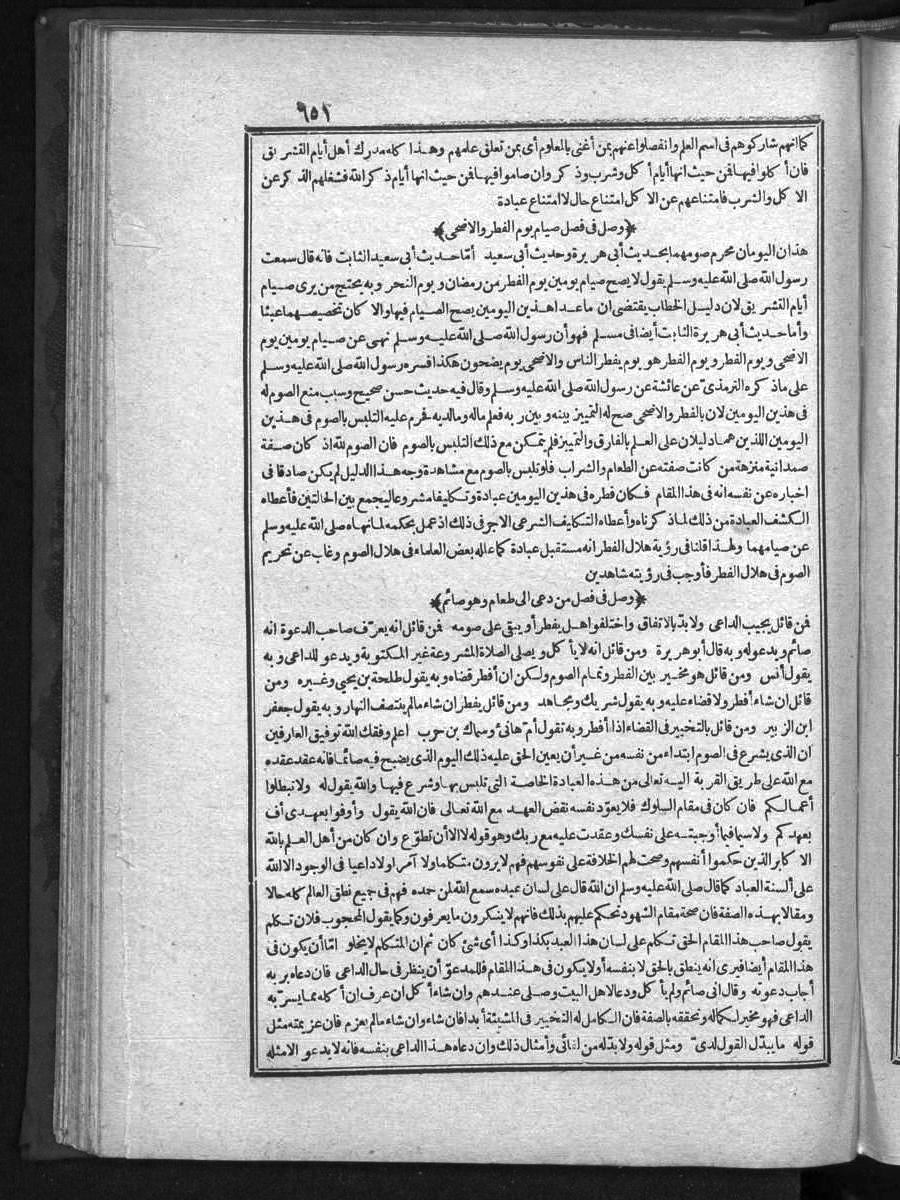 ٦٥١
كما انهم شاركوهم فى اسم العلم وانفصلوا عنهم بمن أغنى بالمعلوم أى بمن تعلق علمهم وهذا كله مدرك أهل أيام التشريق
فان أكلوا فيها فمن حيث انها أيام أكل وشرب وذكر وان صاموا فيها فمن حيث انها أيام ذكر الله فشغلهم الذكر عن
الاكل والشرب فامتناعهم عن الاكل امتناع حال لا امتناع عبادة
﴿وصل فى فصل صيام يوم الفطر والاضحى﴾
هذان اليومان محرم صومهما بحديث أبى هريرة وحديث أبى سعيد أما حديث أبى سعيد الثابت فانه قال سمعت
رسول الله صلى الله عليه وسلم يقول لا يصح صيام يومين يوم الفطر من رمضان ويوم النحر وبه يحتج من يرى صيام
أيام التشريق لان دليل الخطاب يقتضى ان ماعدا هذين اليومين يصح الصيام فيها والا كان تخصيصهما عبثا
وأما حديث أبى هريرة الثابت أيضا فى مسلم فهو أن رسول الله صلى الله عليه وسلم نهى عن صيام يومين يوم
الاضحى ويوم الفطر ويوم الفطر هو يوم يفطر الناس والاضحى يوم يضحون هكذا فسره رسول الله صلى الله عليه وسلم
على ماذكره الترمذى عن عائشة عن رسول الله صلى الله عليه وسلم وقال فيه حديث حسن صحيح وسبب منع الصوم له
فى هذين اليومين لان بالفطر والاضحى صح له التمييز بينه وبين ربه فعلم ماله ومالديه فحرم عليه التلبس بالصوم فى هذين
اليومين اللذين هما دليلان على العلم بالفارق والتمييز فلم يتمكن مع ذلك التلبس بالصوم فان الصوم لله اذ كان صفة
صمدانية منزهة من كانت صفته عن الطعام والشراب فلو تلبس بالصوم مع مشاهدة وجه هذا الدليل لم يكن صادقا فى
اخباره عن نفسه انه فى هذا المقام فكان فطره فى هذين اليومين عبادة وتكليفا مشروعا ليجمع بين الحالتين فأعطاه
الكشف العبادة من ذلك لما ذكرناه وأعطاه التكليف الشرعى الاجر فى ذلك اذ عمل بحكمه لما نهاه صلى الله عليه وسلم
عن صيامهما ولهذا قلنا فى رؤية هلال الفطر انه مستقبل عبادة كما علله بعض العلماء فى هلال الصوم وغاب عن تحريم
الصوم فى هلال الفطر فأوجب فى رؤيته شاهدين
﴿وصل فى فصل من دعى الى طعام وهو صائم﴾
فمن قائل يجيب الداعى ولابد بالاتفاق واختلفوا هل يفطر أو يبقى على صومه فمن قائل انه يعرّف صاحب الدعوة انه
صائم ويدعو له وبه قال أبو هريرة ومن قائل انه لا يأكل ويصلى الصلاة المشروعة غير المكتوبة ويدعو للداعى وبه
يقول أنس ومن قائل هو مخير بين الفطر وتمام الصوم ولكن ان أفطر قضاه وبه يقول طلحة بن يحيى وغيره ومن
قائل ان شاء أفطر ولا قضاء عليه وبه يقول شريك ومجاهد ومن قائل يفطر ان شاء مالم ينتصف النهار وبه يقول جعفر
ابن الزبير ومن قائل بالتخيير فى القضاء اذا أفطر وبه تقول أمّ هانئ وسماك بن حرب اعلم وفقك الله توفيق العارفين
ان الذى يشرع فى الصوم ابتداء من نفسه من غير أن يعين الحق عليه ذلك اليوم الذى يصبح فيه صائما فانه عقد عقده
مع الله على طريق القربة اليه تعالى من هذه العبادة الخاصة التى تلبس بها وشرع فيها والله يقول له ولا تبطلوا
أعمالكم فان كان فى مقام السلوك فلا يعوّد نفسه نقض العهد مع الله تعالى فان الله يقول وأوفوا بعهدى أف
بعهدكم ولا سيما فيما أوجبته على نفسك وعقدت عليه مع ربك وهو قوله لا الا أن تطوّع وان كان من أهل العلم بالله
الاكابر الذين حكموا أنفسهم وصحت لهم الخلافة على نفوسهم فهم لا يرون متكلما ولا آمرا ولا داعيا فى الوجود الا الله
على ألسنة العباد كما قال صلى الله عليه وسلم ان الله قال على لسان عبده سمع الله لمن حمده فهم فى جميع نطق العالم كله حالا
ومقالا بهذه الصفة فان صحة مقام الشهود تحكم عليهم بذلك فانهم لا ينكرون ما يعرفون وكما يقول المحجوب فلان تكلم
يقول صاحب هذا المقام الحق تكلم على لسان هذا العبد بكذا وكذا أى شئ كان ثم ان المتكلم لا يخلو امّا أن يكون فى
هذا المقام أيضا فيرى انه ينطق بالحق لا بنفسه أو لا يكون فى هذا المقام فللمدعوّ أن ينظر فى حال الداعى فان دعاه بربه
أجاب دعوته وقال انى صائم ولم يأكل ودعا لاهل البيت وصلى عندهم وان شاء أكل ان عرف ان أكله مما يسرّ به
الداعى فهو مخير لكماله وتحققه بالصفة فان الكامل له التخيير فى المشيئة أبدا فان شاء وان شاء مالم يعزم فان عزيمته مثل
قوله ما يبدّل القول لدىّ ومثل قوله ولا بدّ له من لقائى وأمثال ذلك وان دعاه هذا الداعى بنفسه فانه لا يدعو الا مثله